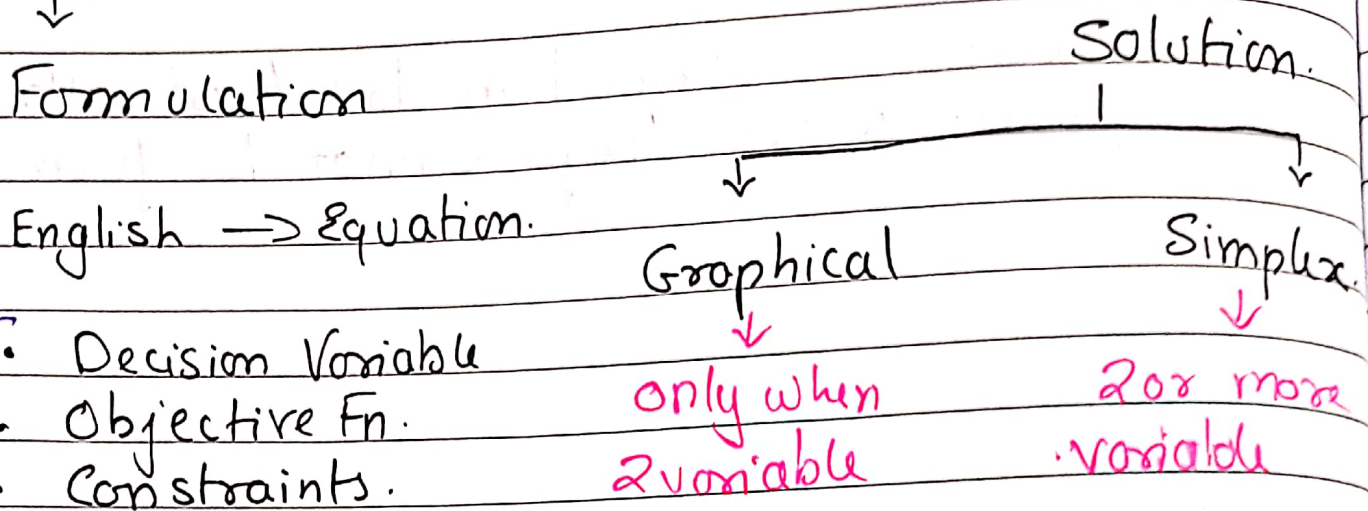 Formulation
English → Equation.
Decision Variable
Objective Fn.
Constraints.
Solution.
Graphical
only when
2 variable
Simplex.
2 or more
variable